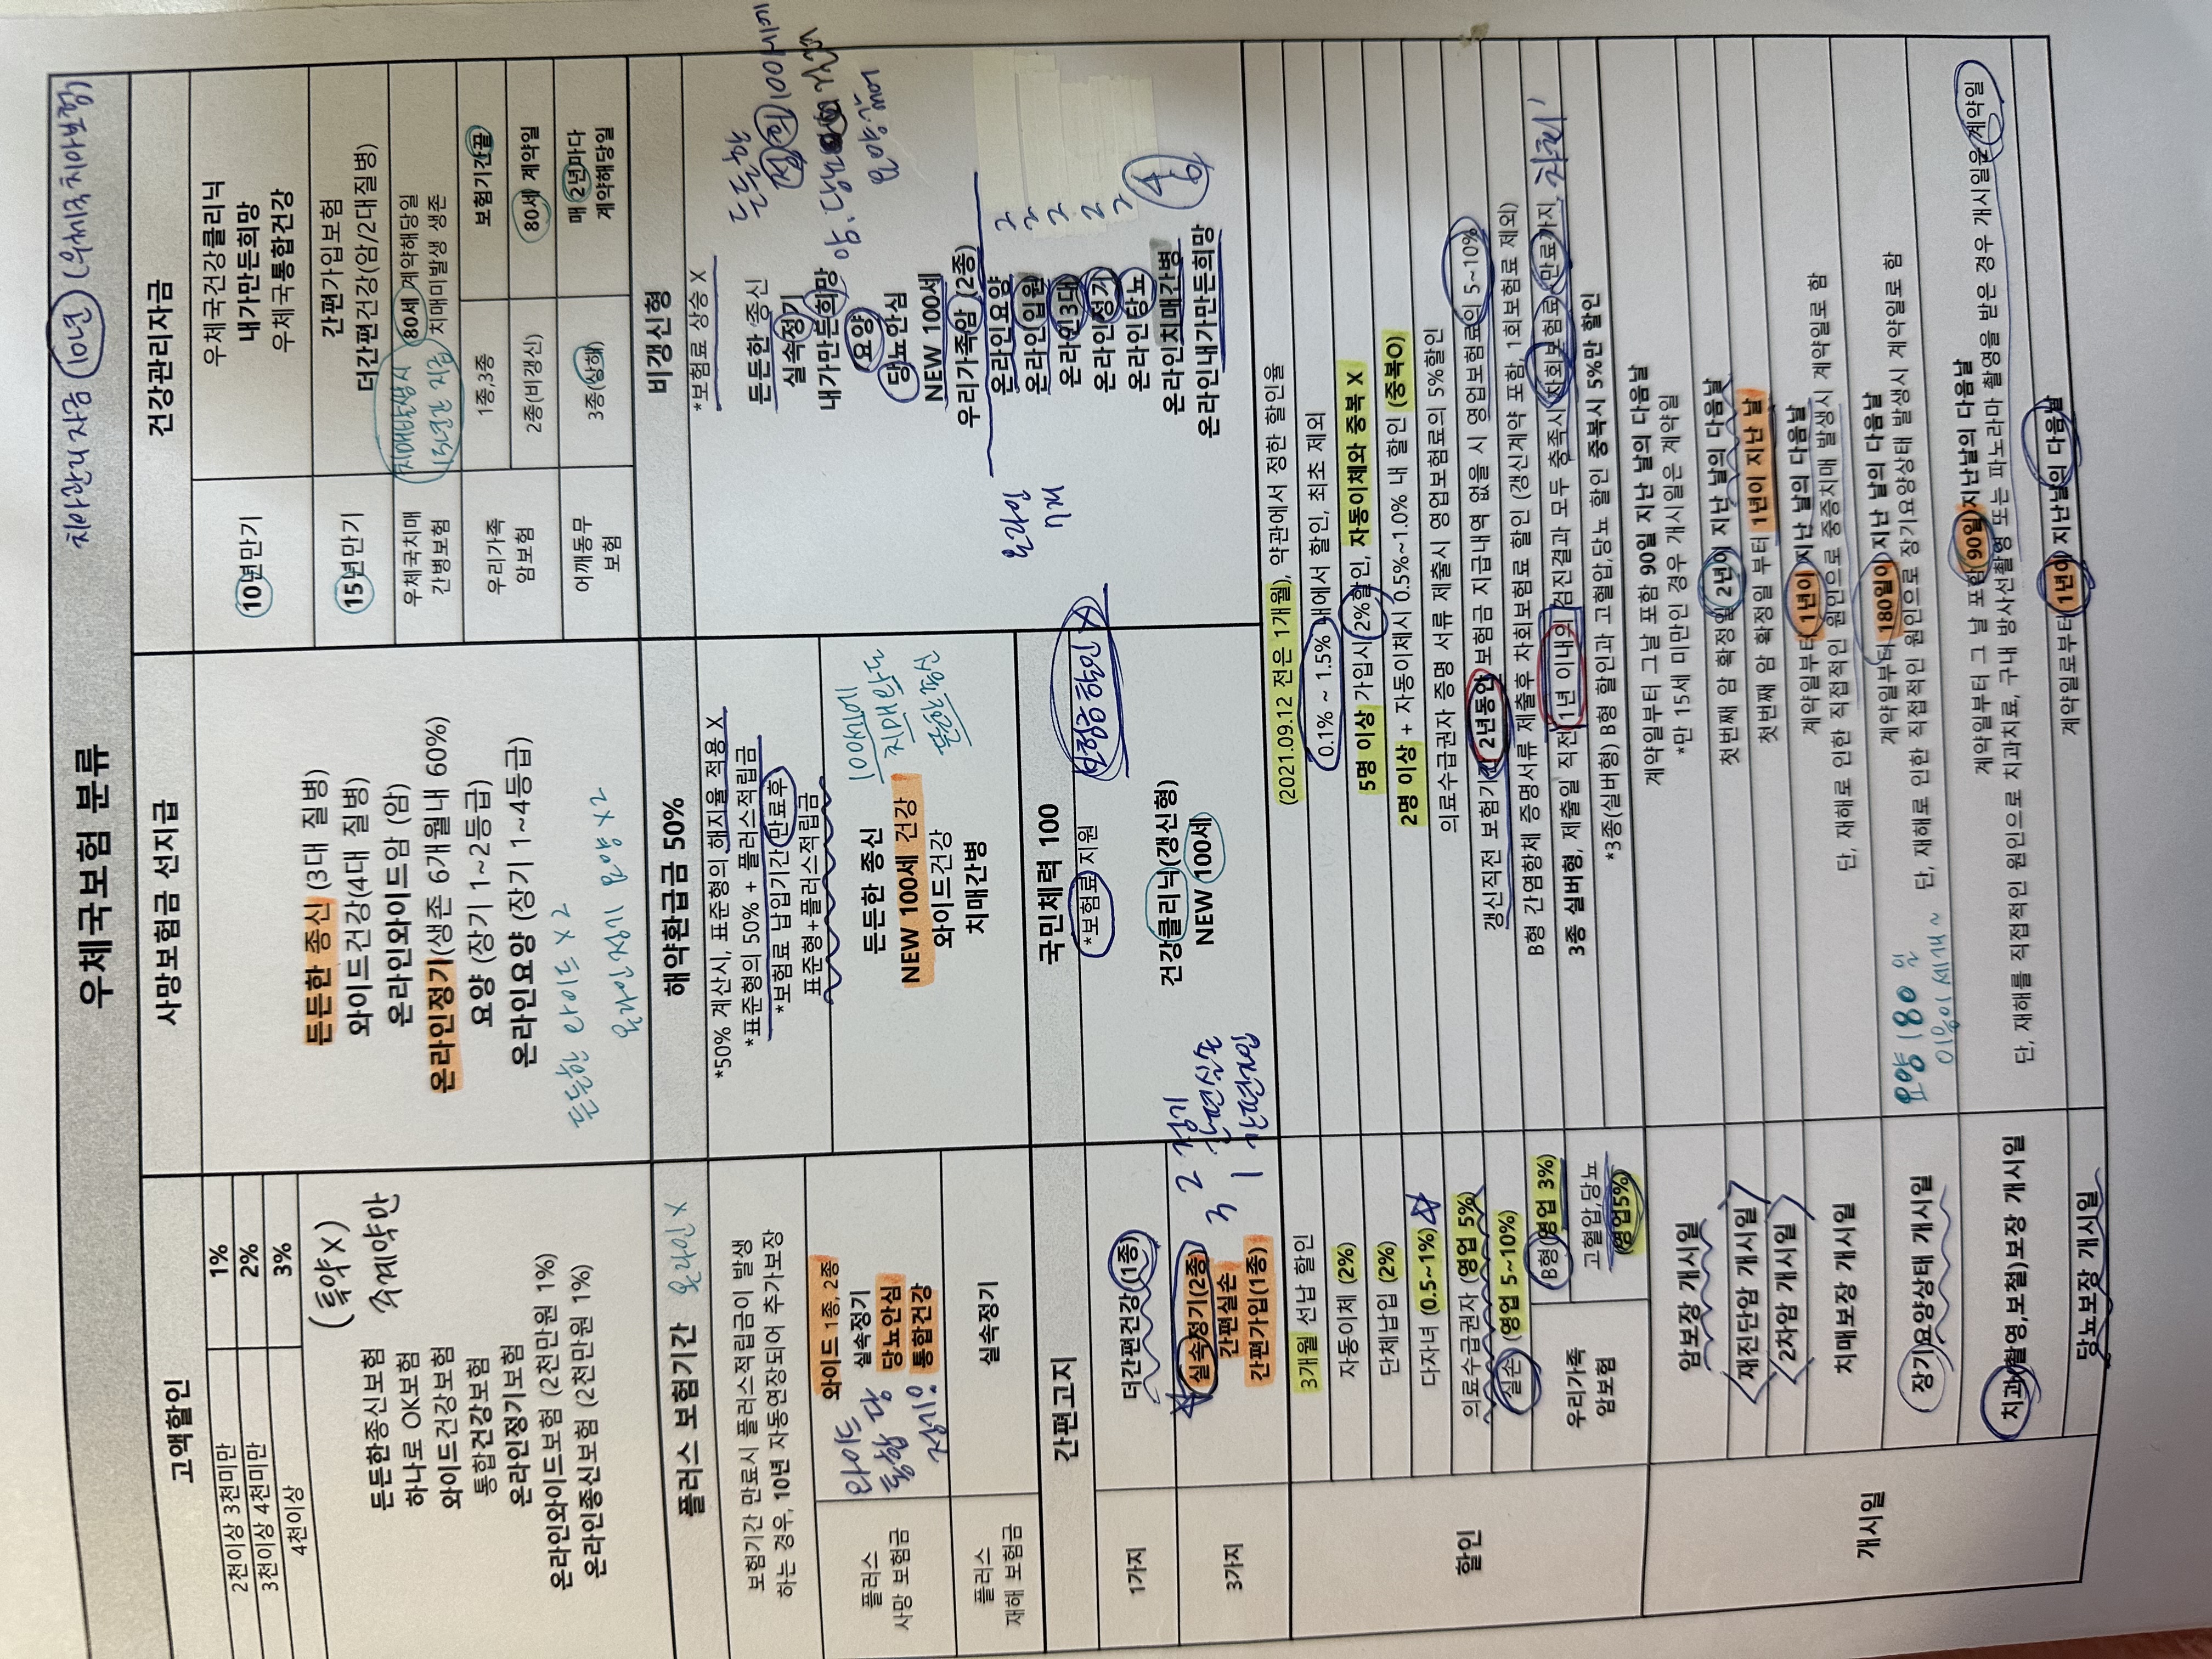 치아관리자금 10년 (우체국치아보험)
우체국보험 분류
고액할인
2천이상 3천미만 1%
3천이상 4천미만 2%
4천이상 3%
(특약X)
주계약만
든든한종신보험
하나로 OK보험
와이드건강보험
통합건강보험
온라인정기보험
온라인와이드보험 (2천만원 1%)
온라인종신보험 (2천만원 1%)
사망보험금 선지급
든든한 종신 (3대 질병)
와이드건강(4대 질병)
온라인와이드암 (암)
온라인정기(생존 6개월내 60%)
요양 (장기 1~2등급)
온라인요양 (장기 1~4등급)
든든한 와이드 x 2
온라인정기 요양 x 2
건강관리자금
10년만기
우체국건강클리닉
내가만든희망
우체국통합건강
15년만기
간편가입보험
더간편건강(암/2대질병)
우체국치매
간병보험
80세 계약해당일
치매미발생 생존
치매관상시
15년간 지급
우리가족
암보험
1종,3종 보험기간끝
2종(비갱신) 80세 계약일
어깨동무
보험
3종(상해) 매 2년마다
계약해당일
플러스 보험기간 온라인X
보험기간 만료시 플러스적립금이 발생
하는 경우, 10년 자동연장되어 추가보장
플러스
사망 보험금
와이드 1종, 2종
실속정기
당뇨안심
통합건강
와이드
통합 당
정기!
플러스
재해 보험금
실속정기
해약환급금 50%
*50% 계산시, 표준형의 해지율 적용 X
*표준형의 50% + 플러스적립금
*보험료 납입기간 만료후
표준형+플러스적립금
든든한 종신
NEW 100세 건강
와이드건강
치매간병
100세에
치매와도
든든한종신
비갱신형
*보험료 상승 X
든든한 종신
실속정기
내가만든희망
요양
당뇨안심
NEW 100세
우리가족암 (2종)
온라인요양 2
온라인입원 2
온라인3대 2
온라인정기 2
온라인당뇨 2
온라인치매간병
온라인내가만든희망
든든한
정희 100세에
암.당뇨
요양
온라인
7개
간편고지
1가지 더간편건강(1종)
3가지
실속정기(2종)
간편실손
간편가입(1종)
3 2 1
정기
간편실손
간편가입
국민체력 100
*보험료 지원
보험금 할인 X
건강클리닉(갱신형)
NEW 100세
할인
3개월 선납 할인 (2021.09.12 전은 1개월), 약관에서 정한 할인율
자동이체 (2%) 0.1% ~ 1.5% 내에서 할인, 최초 제외
단체납입 (2%) 5명 이상 가입시 2%할인, 자동이체와 중복 X
다자녀 (0.5~1%) 2명 이상 + 자동이체시 0.5%~1.0% 내 할인 (중복O)
의료수급권자 (영업 5%) 의료수급권자 증명 서류 제출시 영업보험료의 5%할인
실손 (영업 5~10%) 갱신직전 보험기간 2년동안 보험금 지급내역 없을 시 영업보험료의 5~10%
우리가족
암보험
B형(영업 3%) B형 간염항체 증명서류 제출후 차회보험료 할인 (갱신계약 포함, 1회보험료 제외)
고혈압,당뇨
(영업5%)
3종 실버형, 제출일 직전 1년 이내의 검진결과 모두 충족시 차회보험료 만료까지 차회!
*3종(실버형) B형 할인과 고혈압,당뇨 할인 중복시 5%만 할인
개시일
암보장 개시일
계약일부터 그날 포함 90일 지난 날의 다음날
*만 15세 미만인 경우 개시일은 계약일
재진단암 개시일 첫번째 암 확정일 2년이 지난 날의 다음날
2차암 개시일 첫번째 암 확정일 부터 1년이 지난 날
치매보장 개시일
계약일부터 1년이 지난 날의 다음날
단, 재해로 인한 직접적인 원인으로 중증치매 발생시 계약일로 함
장기요양상태 개시일
계약일부터 180일이 지난 날의 다음날
단, 재해로 인한 직접적인 원인으로 장기요양상태 발생시 계약일로 함
요양 180일
치과촬영,보철)보장 개시일
계약일부터 그 날 포함 90일 지난날의 다음날
단, 재해를 직접적인 원인으로 치과치료, 구내 방사선촬영 또는 파노라마 촬영을 받은 경우 개시일은 계약일
당뇨보장 개시일 계약일로부터 1년이 지난날의 다음날